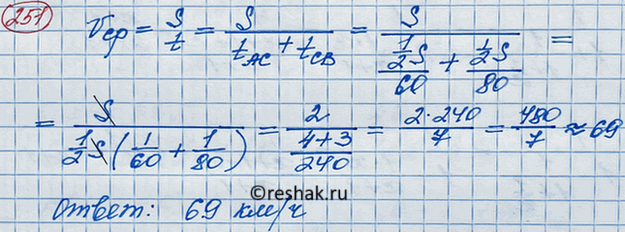 251
Vср = S/t = S/(t_AC + t_CB) = S/((1/2 S)/60 + (1/2 S)/80) =
= S/(1/2 S(1/60 + 1/80)) = 2/((4+3)/240) = 2·240/7 = 480/7 ≈ 69
©reshak.ru
Ответ: 69 км/ч